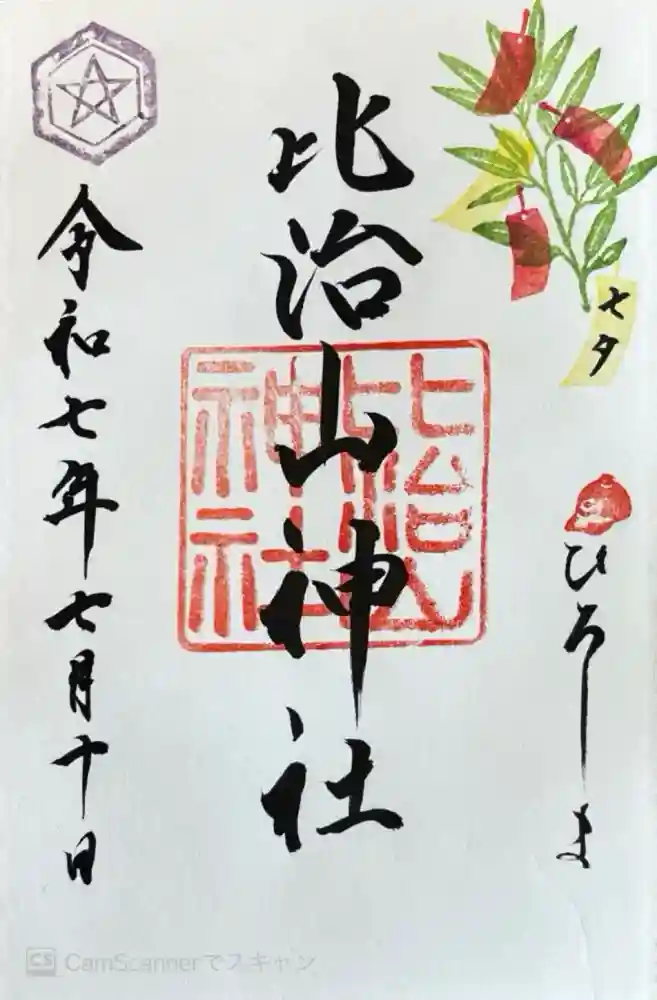 七夕
ひろしま
比治山神社
比治山
神社
令和七年七月十日
CS CamScannerでスキャン